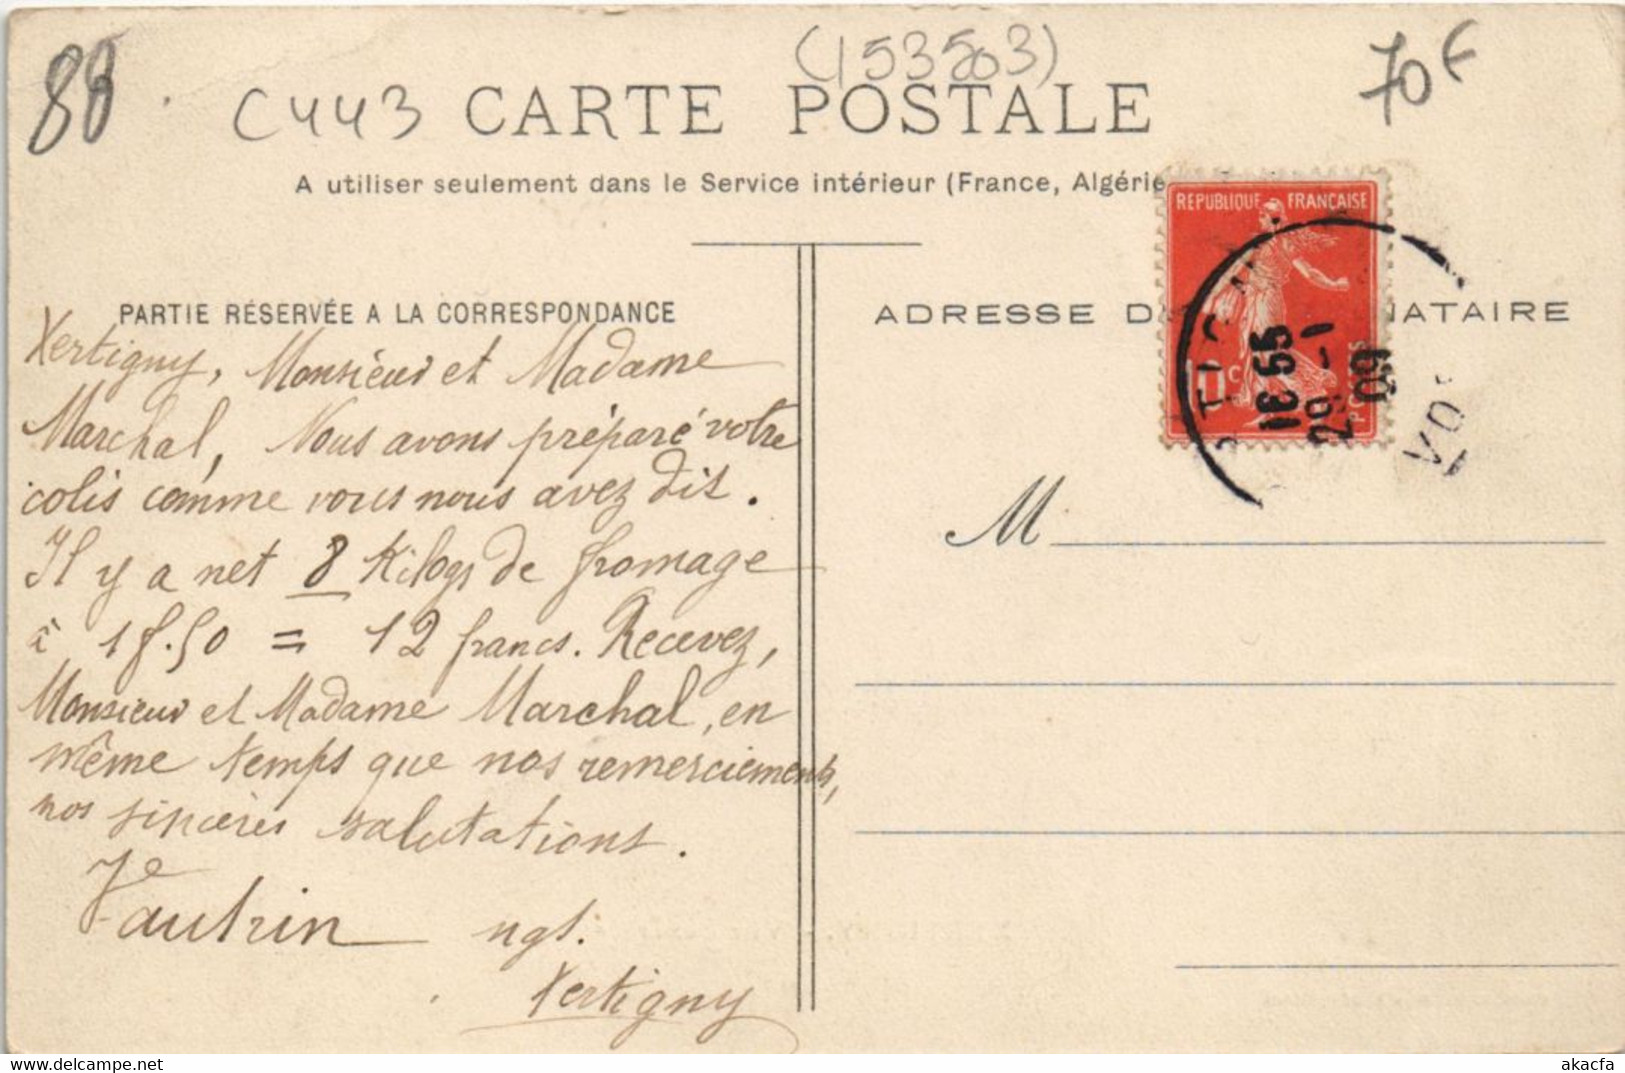 88
C443
(153503)
70F
CARTE POSTALE
A utiliser seulement dans le Service intérieur (France, Algérie
REPUBLIQUE FRANÇAISE
10c
POSTES
13 55
29 - 1
09
PARTIE RÉSERVÉE A LA CORRESPONDANCE
Xertigny, Monsieur et Madame
Marchal, Nous avons préparé votre
colis comme vous nous avez dit.
Il y a net 8 Kilogs de fromage
à 1f.50 = 12 francs. Recevez,
Monsieur et Madame Marchal, en
même temps que nos remerciements,
nos sincères salutations.
Vautrin ngt.
Xertigny
ADRESSE D NATAIRE
M
akpool.co.uk
akacfa